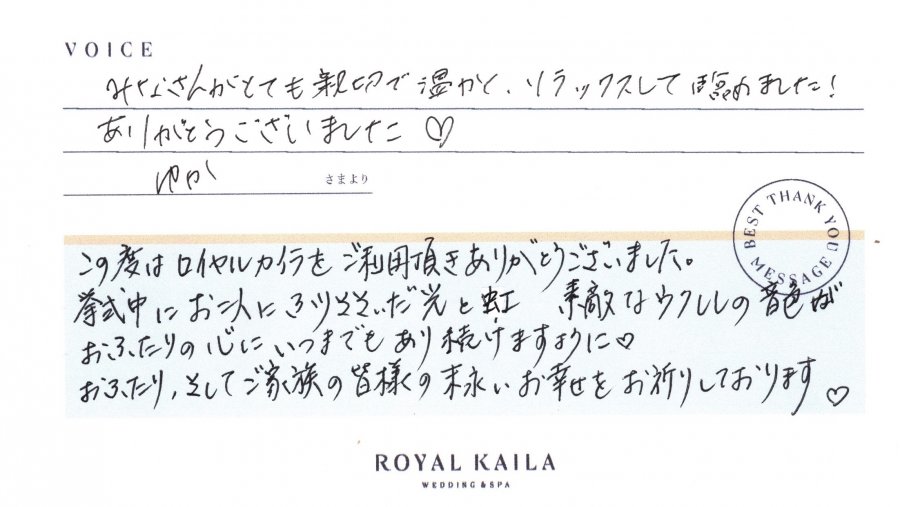 VOICE
みなさんがとても親切で温かく、リラックスして臨めました!
ありがとうございました♡
ゆか
さまより
BEST THANK YOU MESSAGE
この度はロイヤルカイラをご利用頂きありがとうございました。
挙式中にお二人にふりそそいだ光と虹 素敵なウクレレの音色が
おふたりの心にいつまでもあり続けますように♡
おふたり,そしてご家族の皆様の末永いお幸せをお祈りしております♡
ROYAL KAILA
WEDDING & SPA